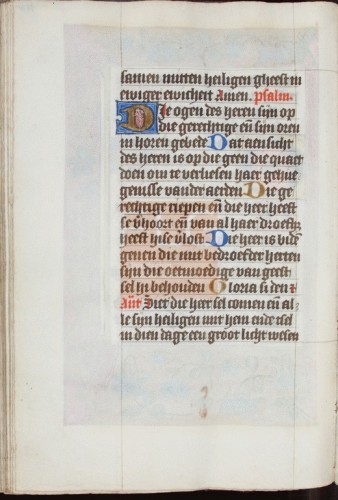 samen mitten heiligen gheest in
ewiger ewicheit Amen. psalm.
Die ogen des heren sijn op
die gerechtige eñ sijn oren
in horen gebede Dat aensicht
des heren is op die geen die quaet
doen om te verliesen haer gehue
genisse vander aerden Die ge
rechtige riepen eñ die heer heeft
se v̄hoort eñ van al haer droefh
heeft hise v̄lost Die heer is bidē
gen die mit bedroefder herten
sijn die oetmoedige van geest
sel hi behouden Gloria si den
Ant Siet die heer sel comen eñ al
le sijn heiligen mit hem ende tsel
in dien dage een groot licht wesen